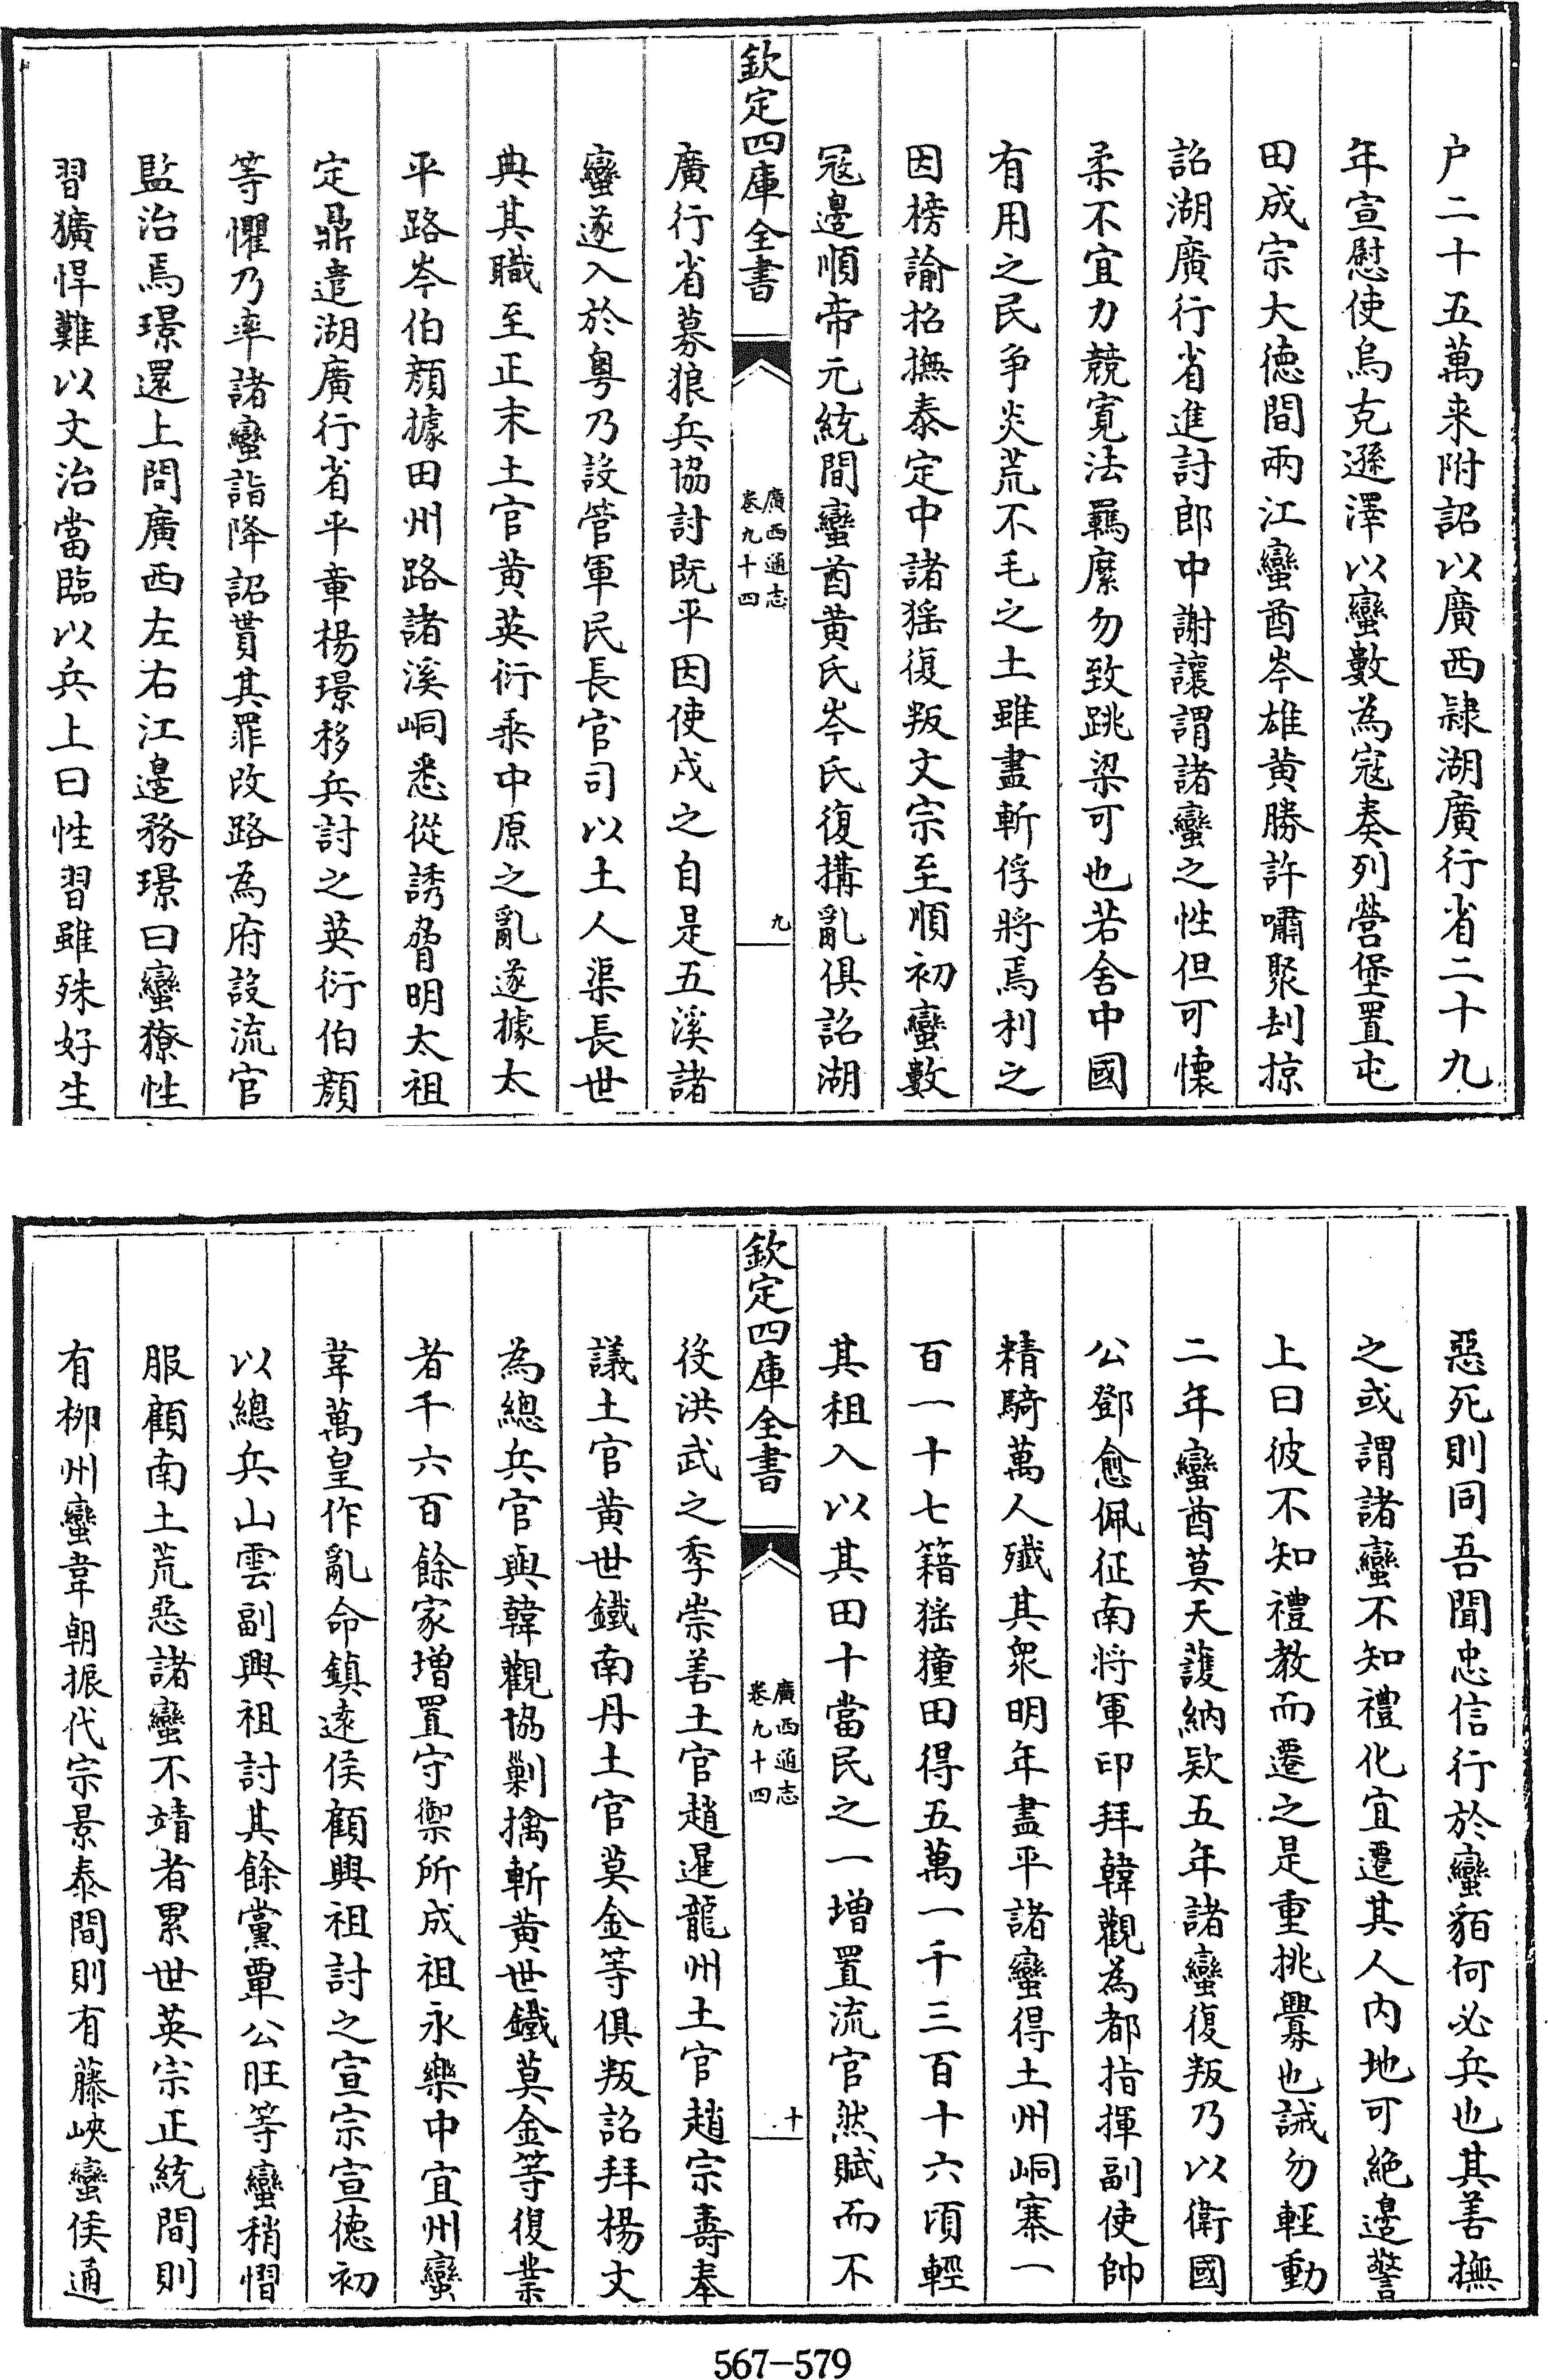 户二十五萬来附詔以廣西隷湖廣行省二十九
年宣慰使烏克遜澤以蠻數為冦奏列營堡置屯
田成宗大徳間兩江蠻酋岑雄黄勝許嘯聚刦掠
詔湖廣行省進討郎中謝讓謂諸蠻之性但可懐
柔不宜力競寛法羈縻勿致跳梁可也若舍中國
有用之民争炎荒不毛之土雖盡斬俘將焉利之
因榜諭招撫泰定中諸猺復叛文宗至順初蠻數
冦邉順帝元統間蠻酋黄氏岑氏復搆亂俱詔湖
欽定四庫全書
廣西通志
卷九十四
九
廣行省募狼兵協討既平因使戍之自是五溪諸
蠻遂入於粤乃設管軍民長官司以土人渠長世
典其職至正末土官黄英衍乗中原之亂遂據太
平路岑伯顔據田州路諸溪峒悉從誘脅明太祖
定鼎遣湖廣行省平章楊璟移兵討之英衍伯顔
等懼乃率諸蠻詣降詔貰其罪改路為府設流官
監治焉璟還上問廣西左右江邉務璟曰蠻獠性
習獷悍難以文治當臨以兵上曰性習雖殊好生
惡死則同吾聞忠信行於蠻貊何必兵也其善撫
之或謂諸蠻不知禮化宜遷其人内地可絶邉警
上曰彼不知禮教而遷之是重挑釁也誡勿輕動
二年蠻酋莫天護納欵五年諸蠻復叛乃以衛國
公鄧愈佩征南将軍印拜韓觀為都指揮副使帥
精騎萬人殱其衆明年盡平諸蠻得土州峒寨一
百一十七籍猺獞田得五萬一千三百十六頃輕
其租入以其田十當民之一増置流官然賦而不
欽定四庫全書
廣西通志
卷九十四
十
役洪武之季崇善土官趙暹龍州土官趙宗夀奉
議土官黄世鐵南丹土官莫金等俱叛詔拜楊文
為總兵官與韓觀協剿擒斬黄世鐵莫金等復業
者千六百餘家増置守禦所成祖永樂中宜州蠻
韋萬皇作亂命鎮逺侯顧興祖討之宣宗宣徳初
以總兵山雲副興祖討其餘黨覃公旺等蠻稍慴
服顧南土荒惡諸蠻不靖者累世英宗正統間則
有栁州蠻韋朝振代宗景泰間則有藤峽蠻侯通
567-579